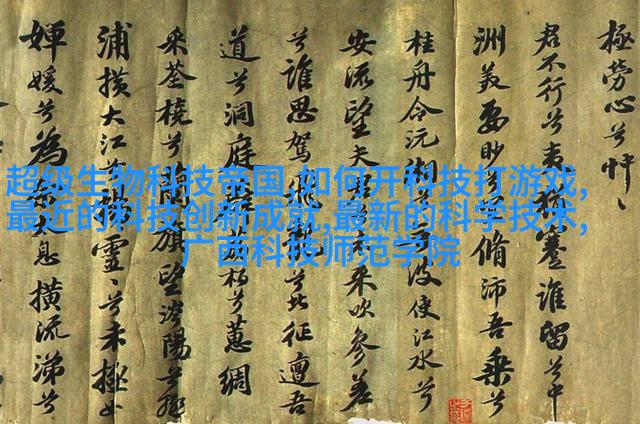 超级生物科技帝国,如何开科技打游戏,
最近的科技创新成就,最新的科学技术,
广西科技师范学院
極勞心兮忡
君不行兮夷猶蹇誰留兮中
洲美要眇兮脩沛吾乘兮
桂舟令沅湘兮波使江水兮
安流望夫來吹參差
兮誰思駕飛兮北征邅吾
道兮洞庭兮蕙綢
采荃橈兮旗望涔陽兮
浦横大江兮靈兮未極女
嬋媛兮為息横流涕兮